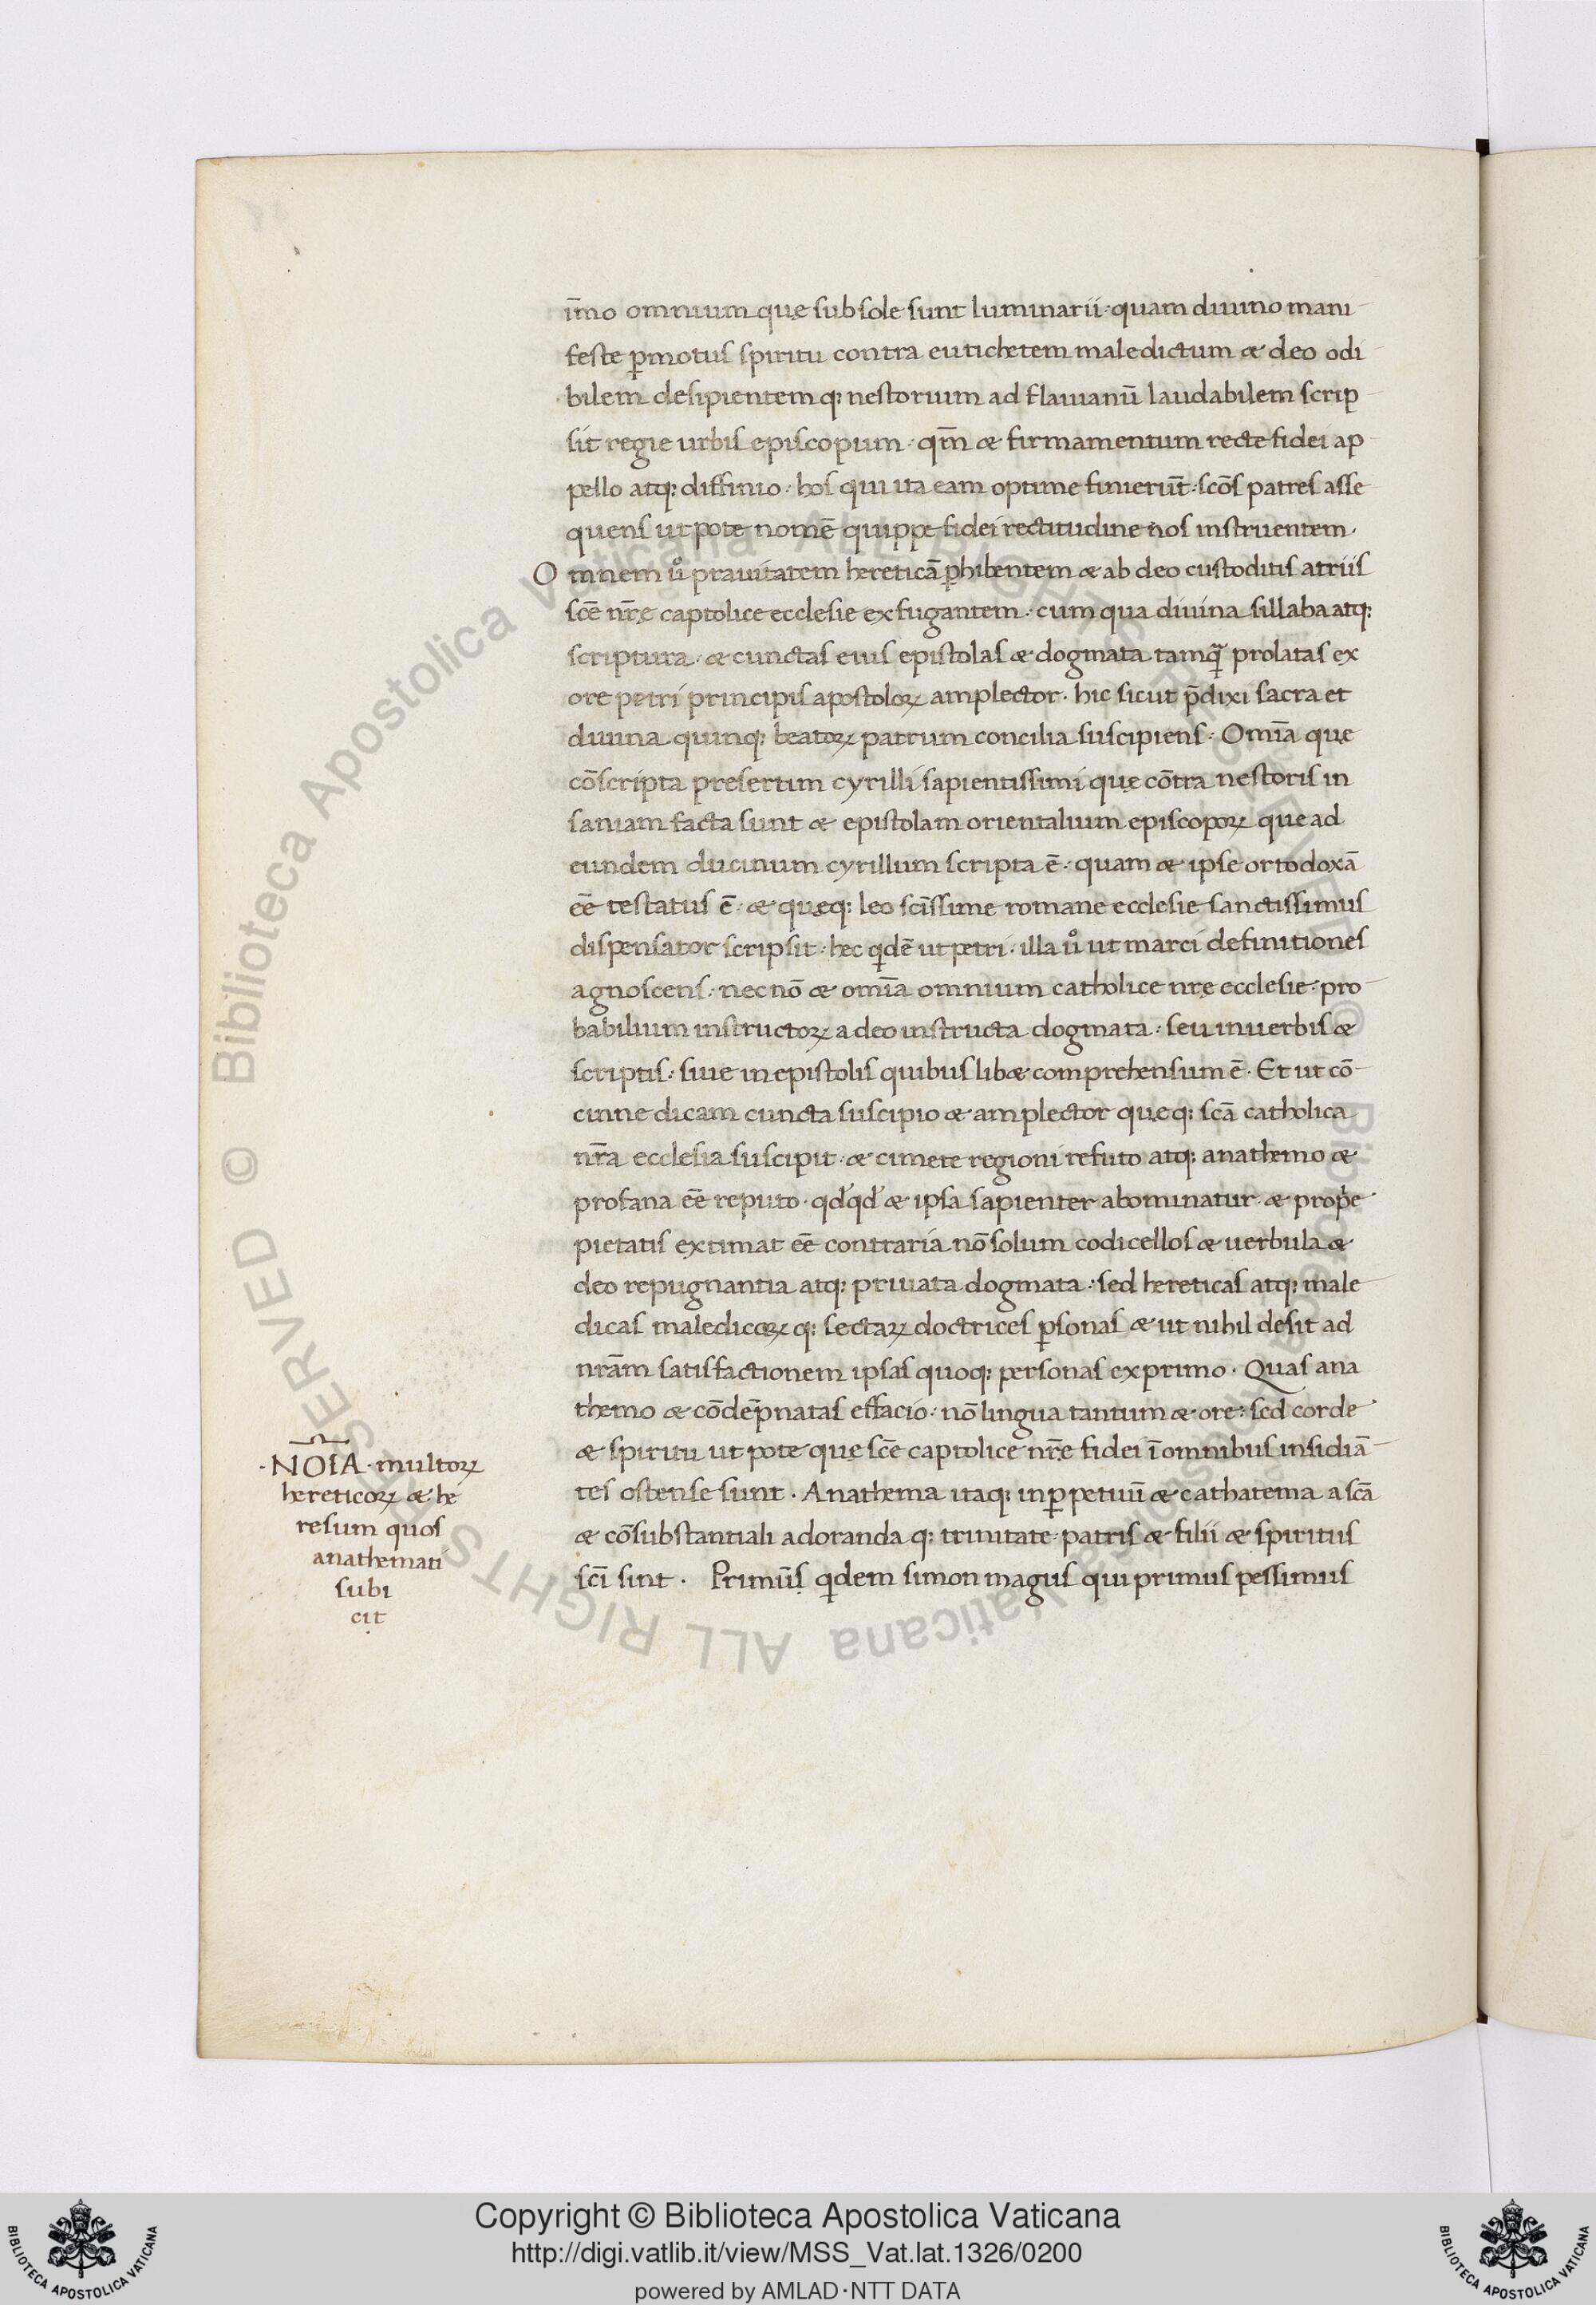 im̄o omnium quę sub sole sunt luminarii · quam diuino mani
feste ꝑmotus spiritu contra eutichetem maledictum & deo odi
bilem desipientem q: nestorium ad flauianū laudabilem scrip
sit regie urbis episcopum · qm̄ & firmamentum recte fidei ap
pello atq: diffinio · hos qui ita eam optime finierūt · scōs patres asse
quens ut pote nomē quippe fidei rectitudine nos instruentem ·
Omnem uͦ prauitatem hereticā ꝓhibentem & ab deo custoditis atriis
scē nr̄ę captolice ecclesie exfugantem · cum qua diuina sillaba atq:
scriptura · & cunctas eius epistolas & dogmata tamqͣ prolatas ex
ore petri principis apostoloꝝ amplector · hic sicut p̄dixi sacra et
diuina quinq: beatoꝝ patrum concilia suscipiens · Omīa quę
cōscripta presertim cyrilli sapientissimi quę cōtra nestoris in
saniam facta sunt & epistolam orientalium episcopoꝝ que ad
eundem ducinum cyrillum scripta ē · quam & ipse ortodoxā
eē testatus ē · & quęq: leo scīssime romane ecclesie sanctissimus
dispensator scripsit · hec qͥdē ut petri · illa uͦ ut marci definitiones
agnoscens · nec nō & omīa omnium catholice nrę ecclesie · pro
babilium instructoꝝ a deo instructa dogmata · seu in uerbis &
scriptis · siue in epistolis quibus lib& comprehensum ē · Et ut cō
cinne dicam cuncta suscipio & amplector quęq: scā catholica
nr̄a ecclesia suscipit · & cimete regioni refuto atq: anathemo &
profana eē reputo · qd'qd' & ipsa sapienter abominatur & prope
pietatis extimat eē contraria nō solum codicellos & uerbula &
deo repugnantia atq: priuata dogmata · sed hereticas atq: male
dicas maledicoꝝ q: sectaꝝ doctrices ꝑsonas & ut nihil desit ad
nrām satisfactionem ipsas quoq: personas exprimo · Quas ana
themo & cōdēpnatas effacio · nō lingua tantum & ore · sed corde
& spiritu ut pote quę scē captolice nr̄ę fidei ī omnibus insidiā
tes ostense sunt · Anathema itaq: in ꝑpetuū & cathatema a scā
& cōsubstantiali adoranda q: trinitate patris & filii & spiritus
scī sint · Primūs qͥdem simon magus qui primus pessimus
· NOīA · multoꝝ
hereticoꝝ & he
resum quos
anathemati
subi
cit
Copyright © Biblioteca Apostolica Vaticana
http://digi.vatlib.it/view/MSS_Vat.lat.1326/0200
powered by AMLAD·NTT DATA
BIBLIOTECA APOSTOLICA VATICANA
BIBLIOTECA APOSTOLICA VATICANA
© Biblioteca Apostolica Vaticana ALL RIGHTS RESERVED © Biblioteca Apostolica Vaticana ALL RIGHTS RESERVED